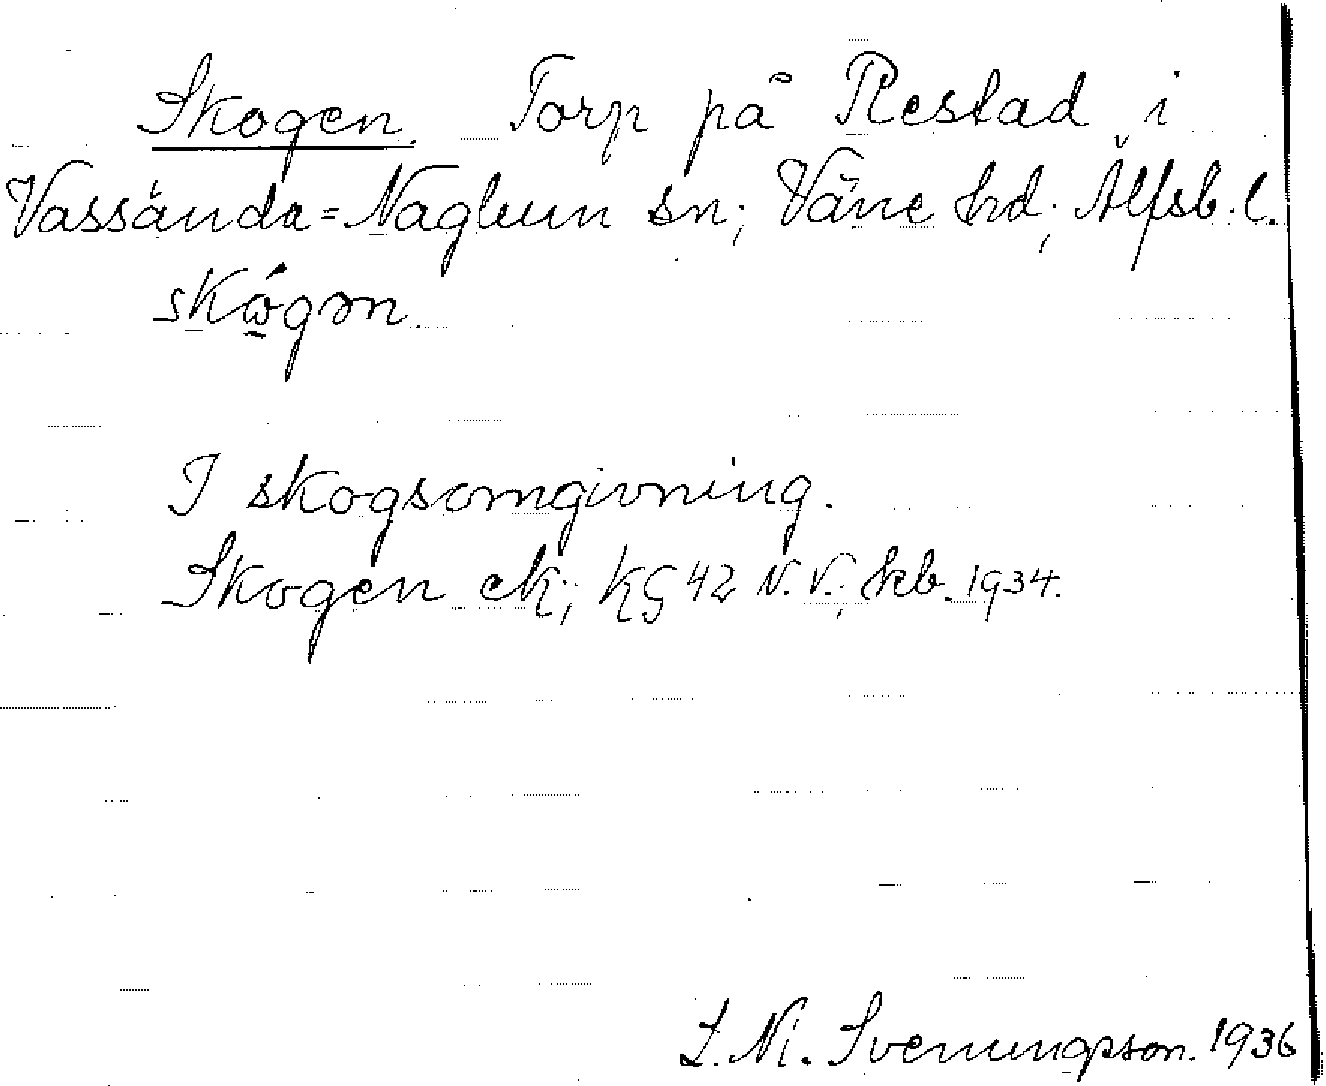 Skogen. Torp på Restad i
Vassända=Naglum sn; Väne hrd; Älfsb. l.
skǫ́gən.
I skogsomgivning.
Skogen ek; KG 42 N. V.; hkb. 1934.
S. N. Svenungsson. 1936